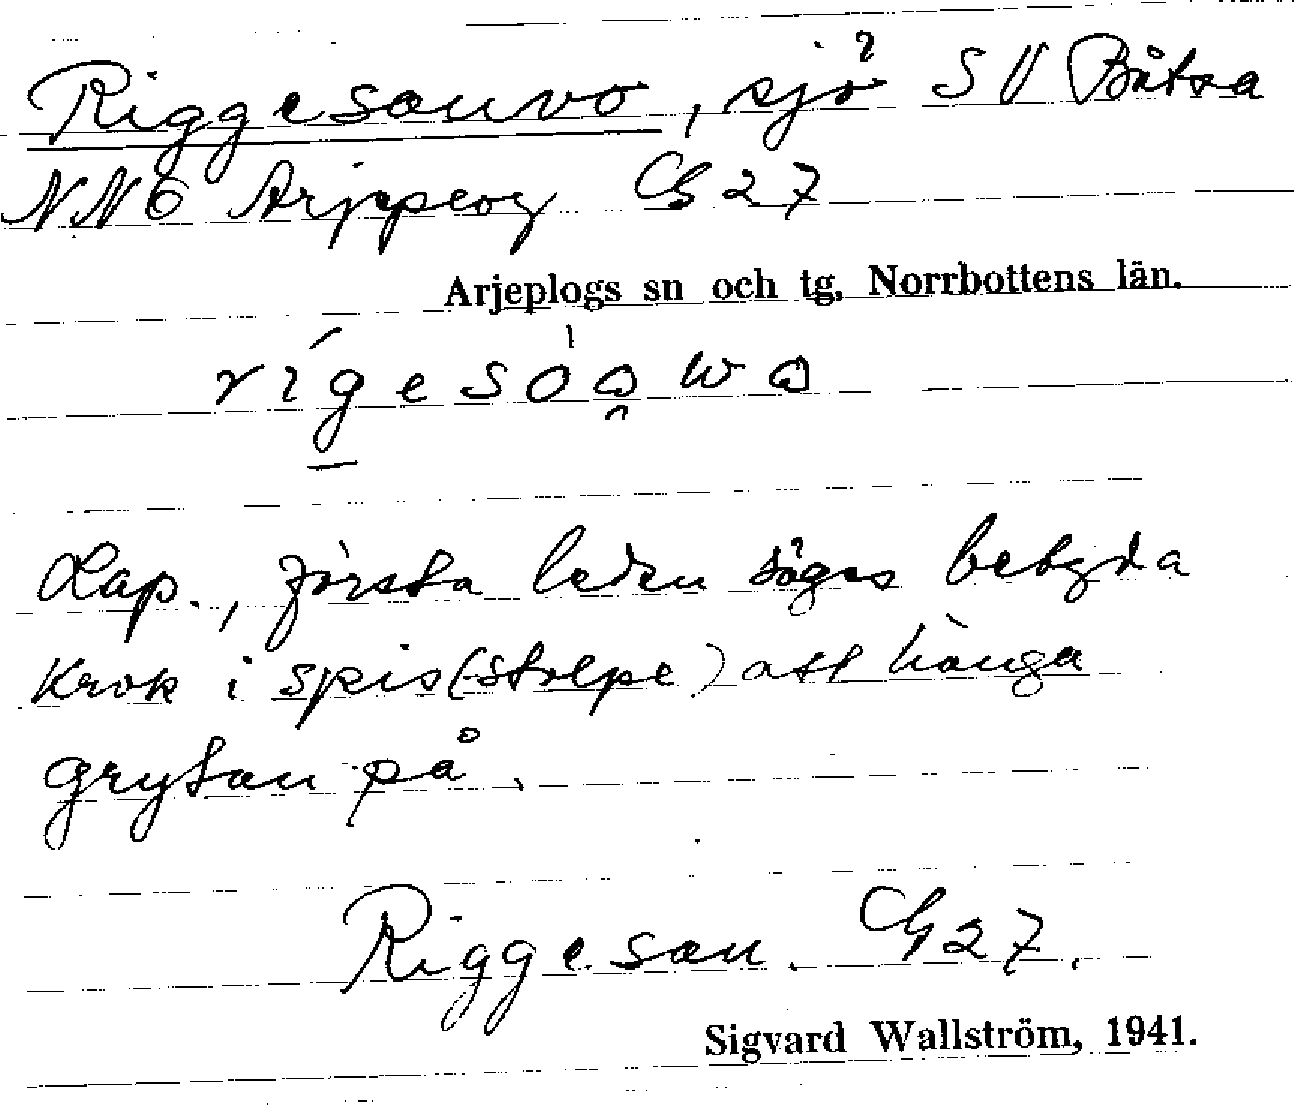 Riggesauvo, sjö SV Båtsa
NNO Arjeplog G27
Arjeplogs sn och tg, Norrbottens län.
Lap., första leden säges betyda
Krok i spis(stolpe) att hänga
grytan på.
Riggesau. G27.
Sigvard Wallström, 1941.